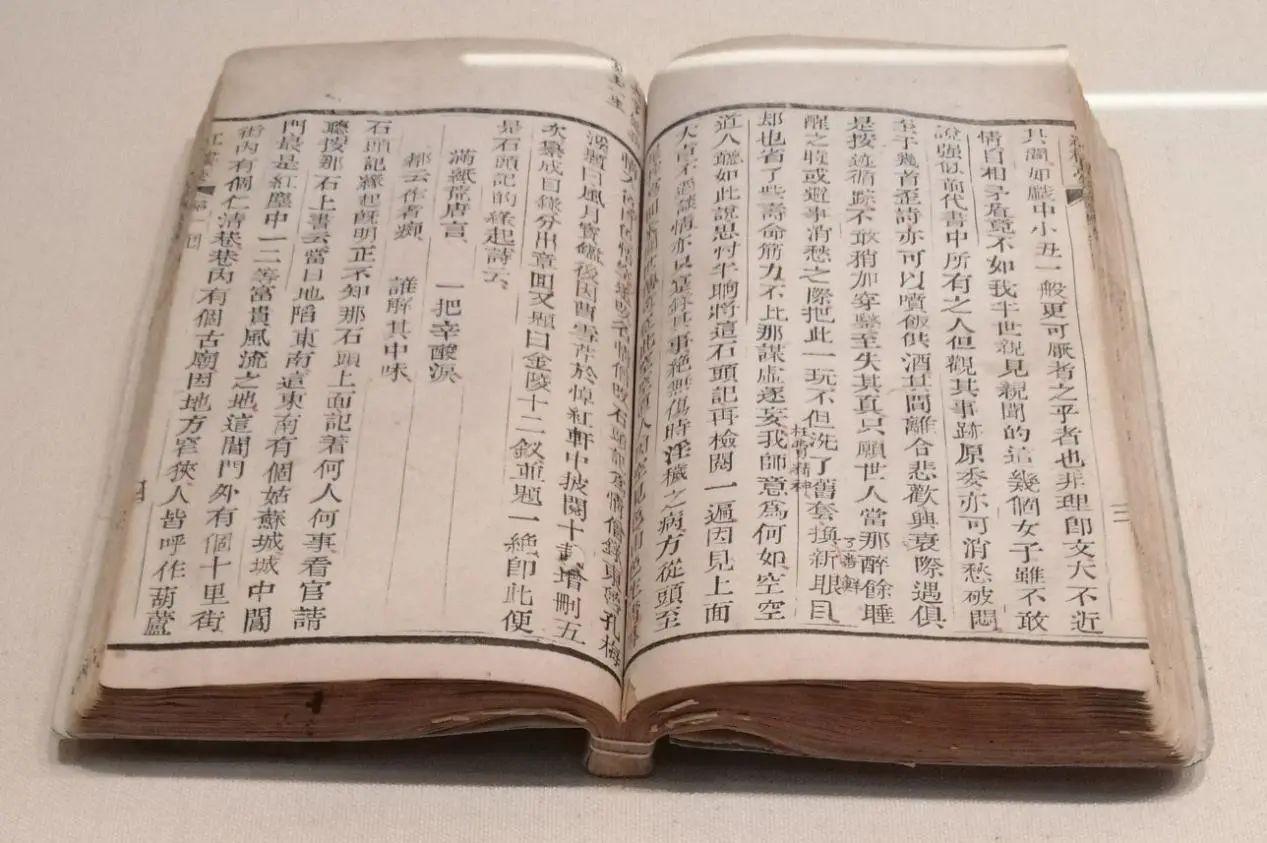 其間如戲中小丑一般更可厭者之乎者也非理卽文大不近
情自相矛盾竟不如我半世親見親聞的這幾個女子雖不敢
說強似前代書中所有之人但觀其事跡原委亦可消愁破悶
至于幾首歪詩亦可以噴飯供酒其間離合悲歡興衰際遇俱
是按迹循踪不敢稍加穿鑿至失其真只願世人當那醉餘睡
醒之時或避事消愁之際把此一玩不但洗了舊套換新眼目
枉費精神
却也省了些壽命筋力不比那謀虛逐妄我師意爲何如空空
道人聽如此說思忖半晌將這石頭記再檢閱一遍因見上面
大旨不過談情亦只是錄其事絕無傷時淫穢之病方從頭至
三
改名情僧改石頭記爲情僧錄東魯孔梅
溪題曰風月寶鑑後因曹雪芹於悼紅軒中披閱十載增刪五
次纂成目錄分出章回又題曰金陵十二釵並題一絕卽此便
是石頭記的緣起詩云
滿紙荒唐言 一把辛酸淚
都云作者痴 誰解其中味
石頭記緣起旣明正不知那石頭上面記著何人何事看官請
聽按那石上書云當日地陷東南這東南有個姑蘇城城中閶
門最是紅塵中一二等富貴風流之地這閶門外有個十里街
街內有個仁清巷巷內有個古廟因地方窄狹人皆呼作葫蘆
紅樓夢 第一回
四